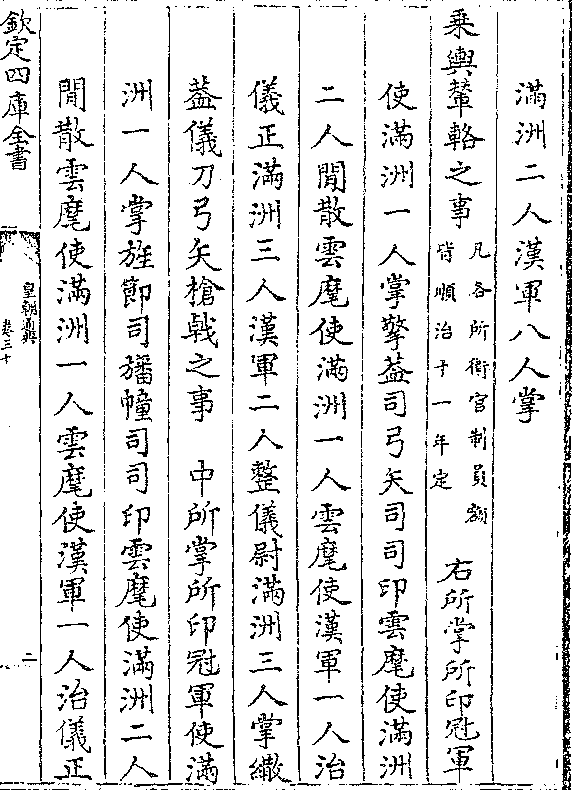 滿洲二人漢軍八人掌
乗輿輦輅之事 凡各所衛官制員額皆順治十一年定 右所掌所印冠軍
使滿洲一人掌擎葢司弓矢司司印雲麾使滿洲
二人閒散雲麾使滿洲一人雲麾使漢軍一人治
儀正滿洲三人漢軍二人整儀尉滿洲三人掌繖
葢儀刀弓矢槍㦸之事 中所掌所印冠軍使滿
洲一人掌旌節司旛幢司司印雲麾使滿洲二人
閒散雲麾使滿洲一人雲麾使漢軍一人治儀正
欽定四庫全書
皇朝通典
卷三十
二